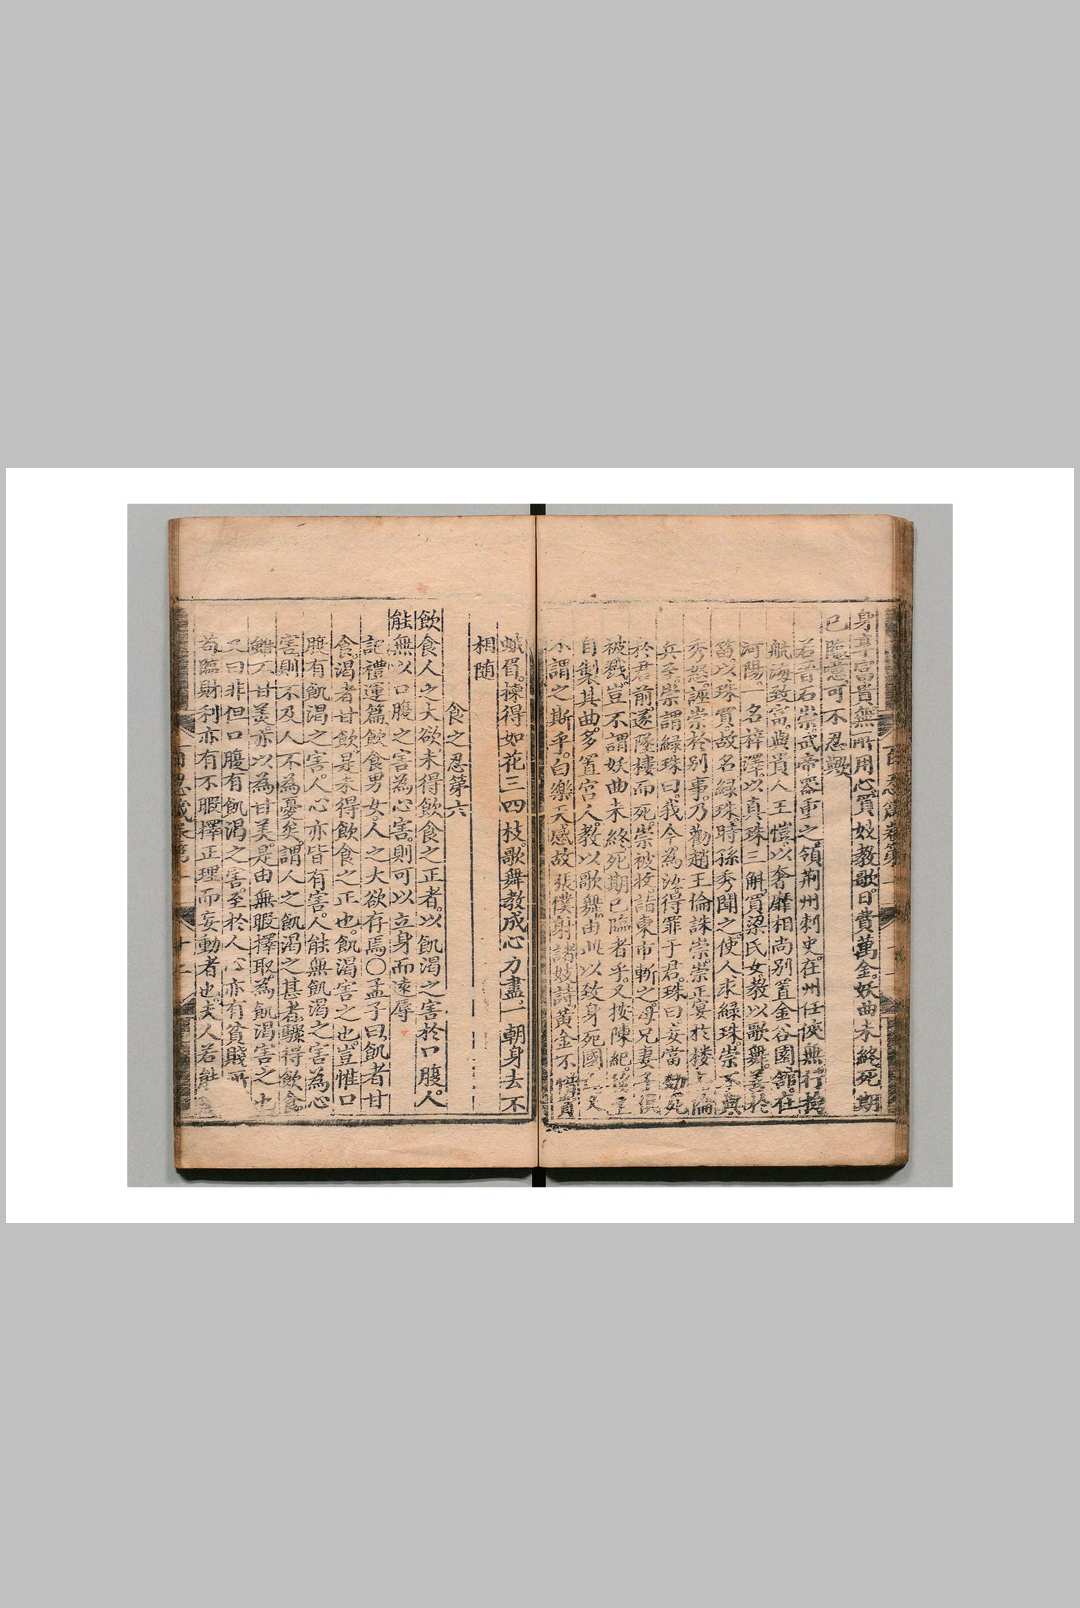 身享富貴無所用心買妓教歌日費萬金妖曲未終死期
已臨噫可不忍歟
若晉石崇武帝器重之領荊州刺史在州任俠無行
航海致富與貴人王愷以奢靡相尚別置金谷園館在
河陽一名梓澤以真珠三斛買梁氏女教以歌舞善於
笛以珠買故名綠珠時孫秀聞之使人求綠珠崇不與
秀怒誣崇於別事乃勸趙王倫誅崇崇正宴於樓
兵至崇謂綠珠曰我今為汝得罪于君珠曰妾當死
於君前遂墜樓而死崇被挽詣東市斬之母兄妻子俱
被戮豈不謂妖曲未終死期已臨者乎又按陳紀
自製其曲多置宮人教以歌舞由此以致身死國
不謂之斯乎白樂天感故張僕射諸妓詩黃金不惜買
蛾眉揀得如花三四枝歌舞教成心力盡一朝身去不
相随
食之忍第六
飲食人之大欲未得飲食之正者以飢渴之害於口腹人
能無以口腹之害為心害則可以立身而遠辱
記禮運篇飲食男女人之大欲存焉○孟子曰飢者甘
食渴者甘飲是未得飲食之正也飢渴害之也豈惟口
腹有飢渴之害人心亦皆有害人能無飢渴之害為心
害則不及人不為憂矣謂人之飢渴之甚者驟得飲食
雖不甘美亦以為甘美是由無暇擇取為飢渴害之也
又曰非但口腹有飢渴之害至於人心亦有貧賤所
苟臨財利亦有不暇擇正理而妄動者也夫人若能